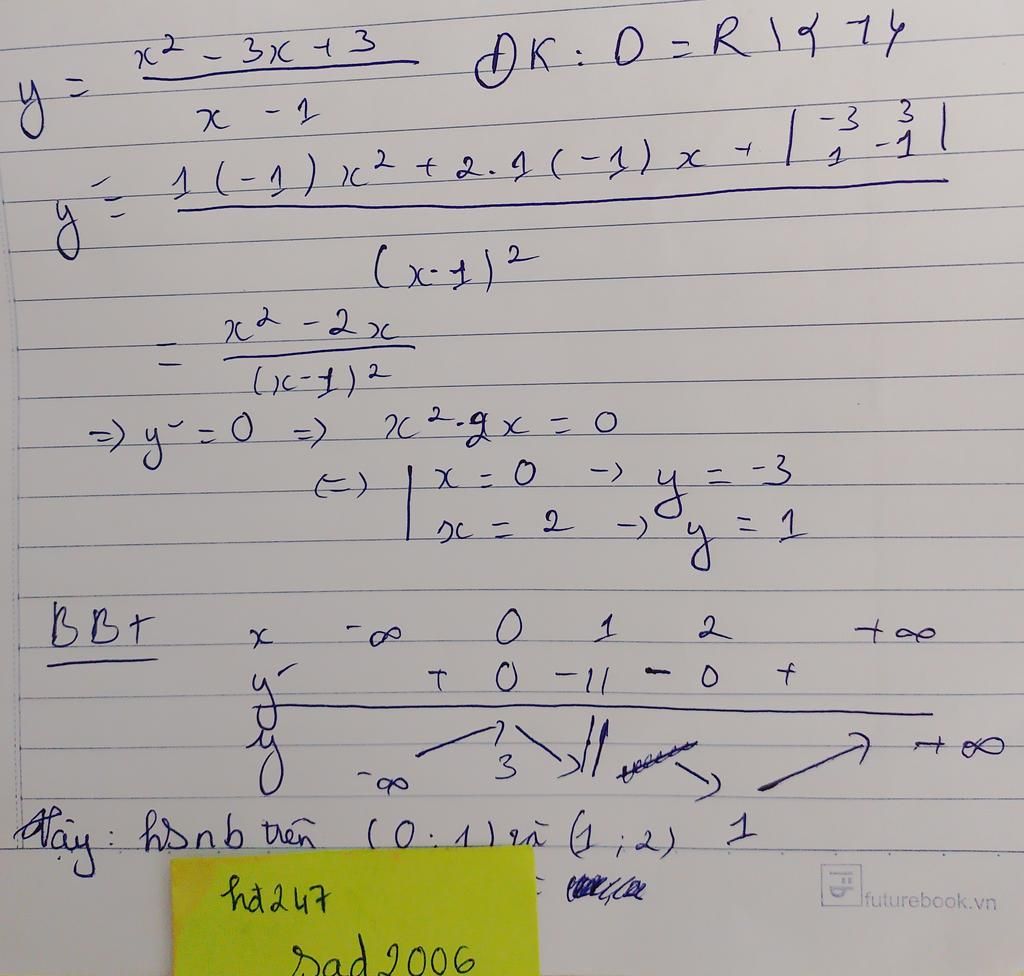 y = (x² - 3x + 3) / (x - 1) ĐK: D = R \ {1}
y' = (1(-1)x² + 2.1(-1)x + | -3 3 ; 1 -1 |) / (x-1)²
= (x² - 2x) / (x-1)²
=> y' = 0 => x² - 2x = 0
<=> | x = 0 -> y = -3
x = 2 -> y = 1
BBT x -∞ 0 1 2 +∞
y' + 0 - || - 0 +
y -∞ ↗ 3 ↘ || ↘ 1 ↗ +∞
Vậy: hsnb trên (0:1) và (1;2)
hd247
sad2006
futurebook.vn